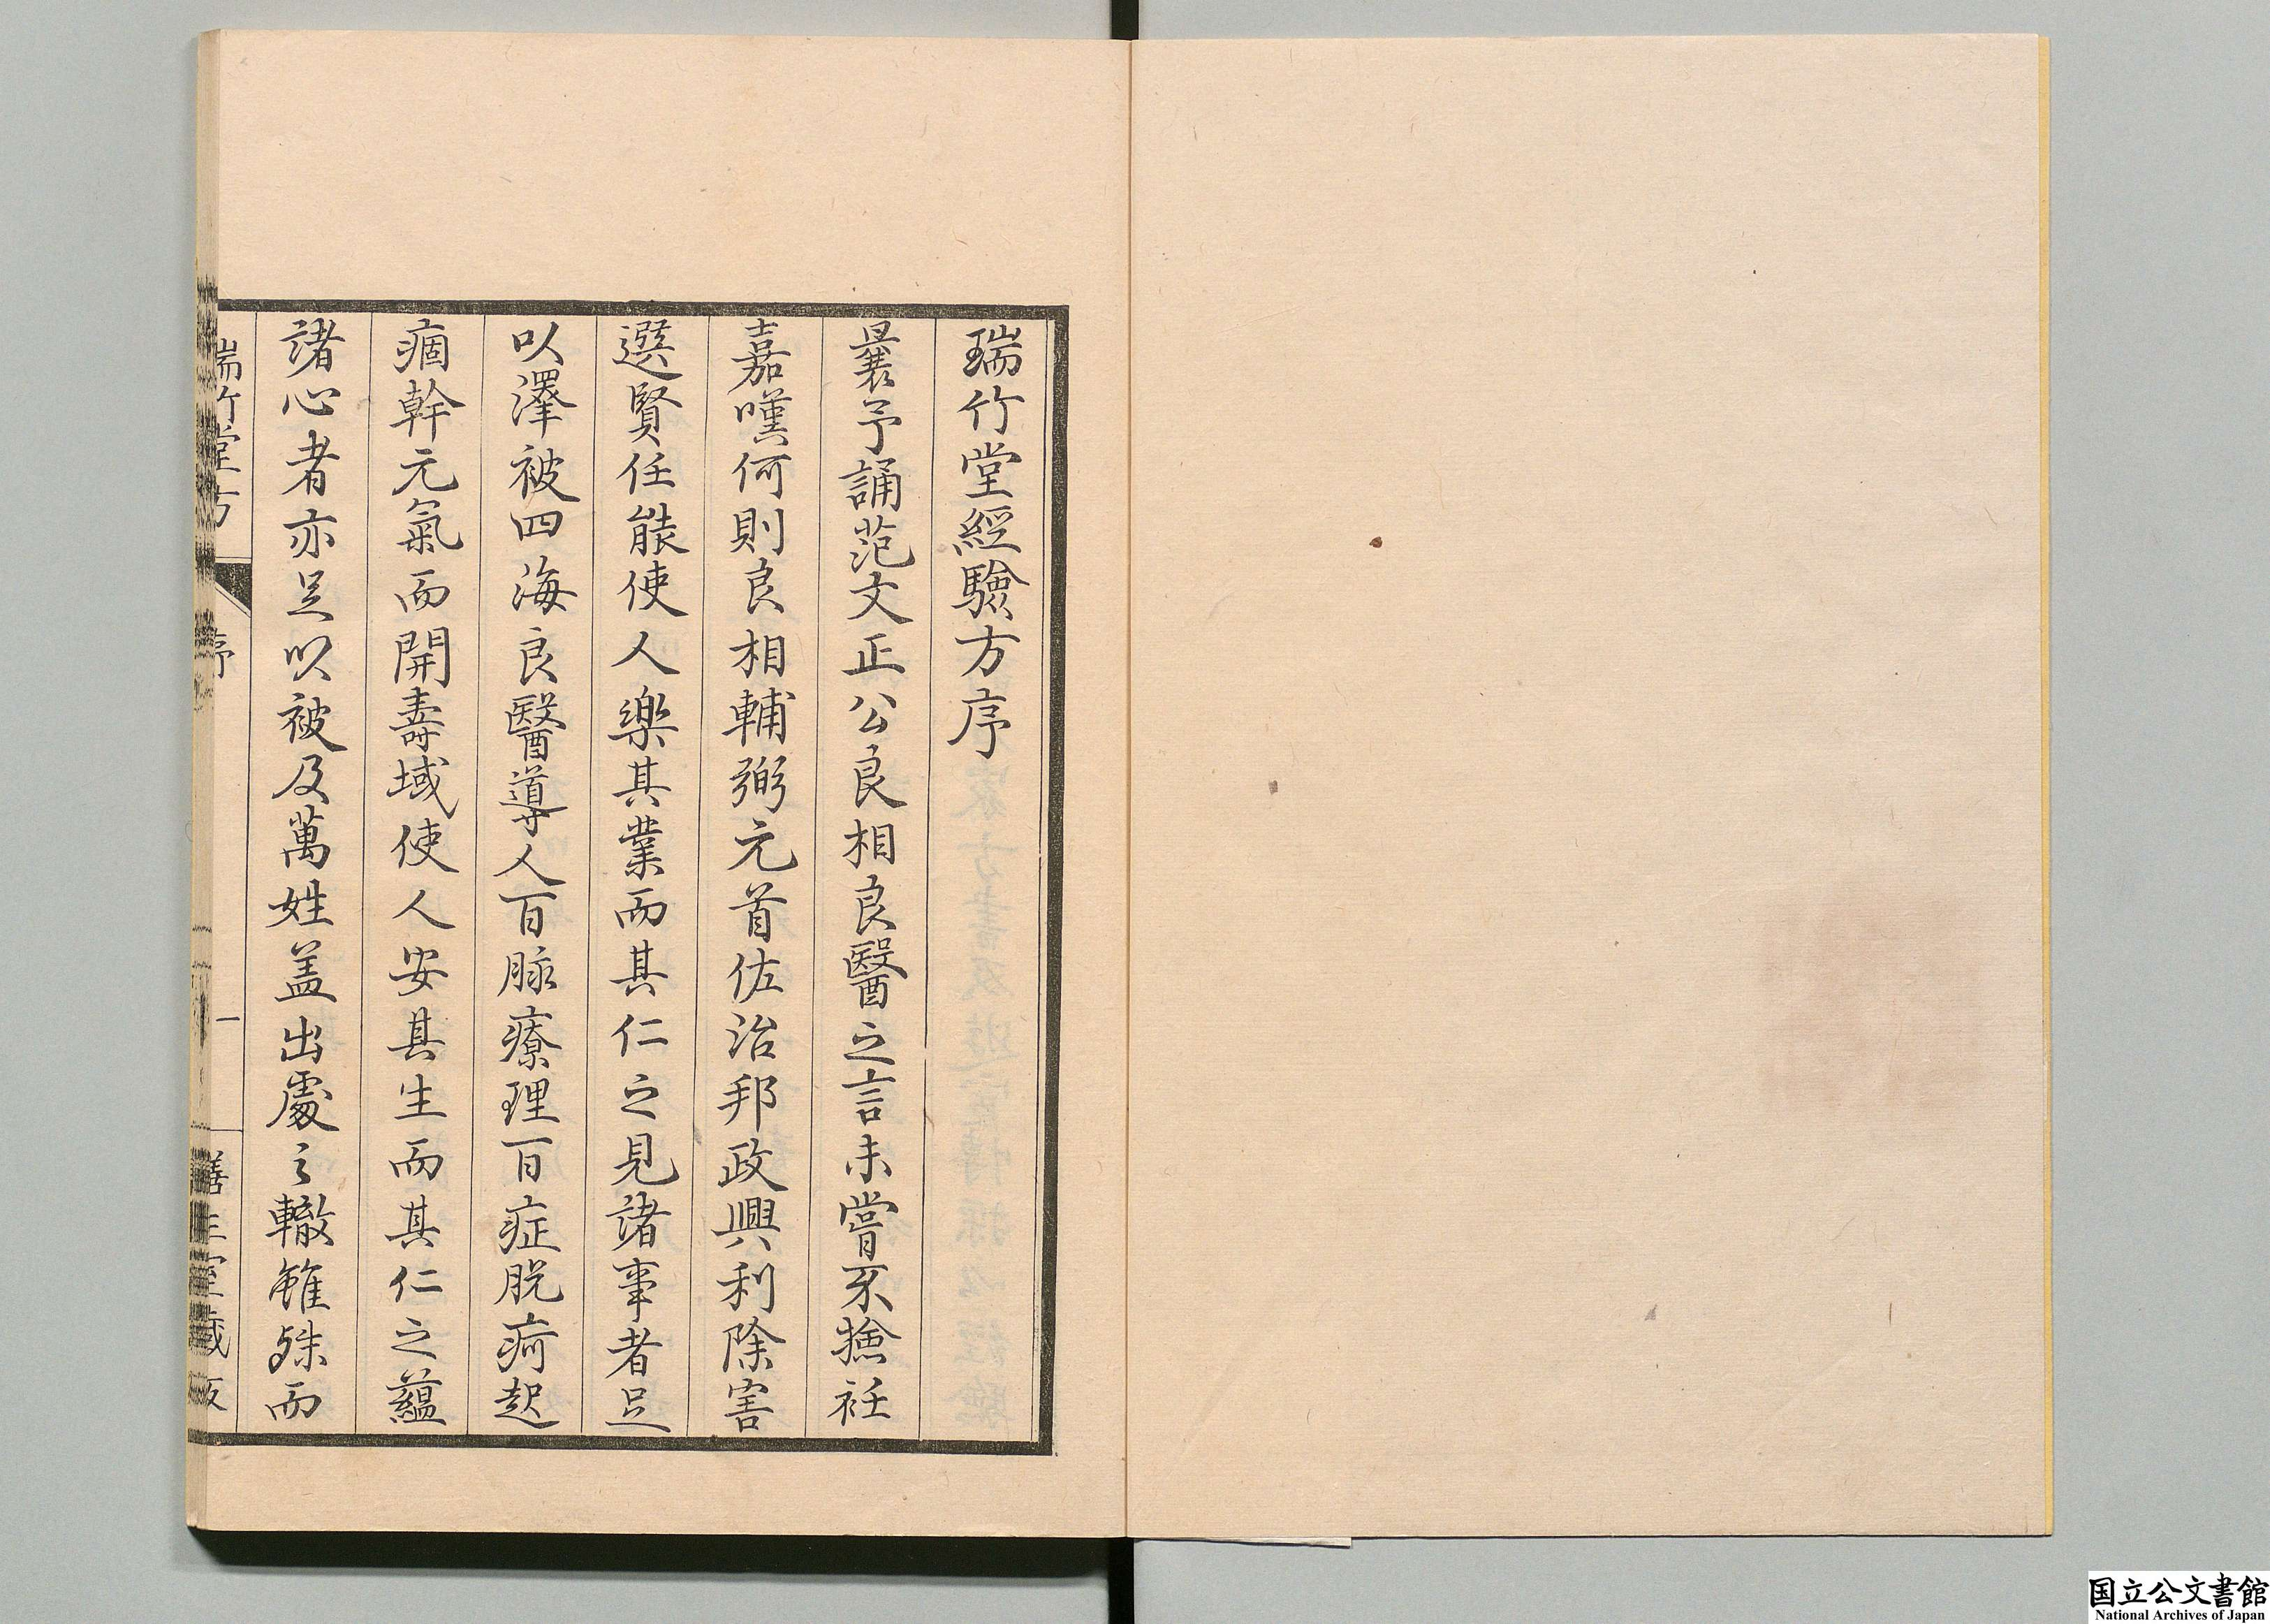 瑞竹堂經驗方序
曩予誦范文正公良相良醫之言未嘗不撿衽
嘉嘆何則良相輔弼元首佐治邦政興利除害
選賢任能使人樂其業而其仁之見諸事者足
以澤被四海良醫導人百脉療理百症脱痾起
痼幹元氣而開壽域使人安其生而其仁之蘊
諸心者亦足以被及萬姓盖出處之轍雖殊而
瑞竹堂方
序
一
國立公文書館
National Archives of Japan